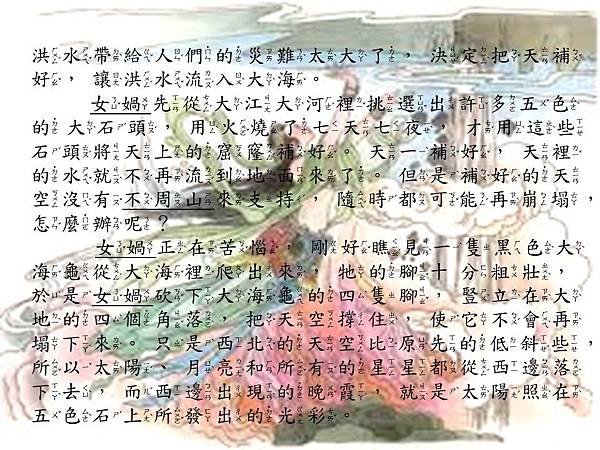 洪水帶給人們的災難太大了，決定把天補
好，讓洪水流入大海。
女媧先從大江大河裡挑選出許多五色
的大石頭，用火燒了七天七夜，才用這些
石頭將天上的窟窿補好。天一補好，天裡
的水就不再流到地面來了。但是補好的天
空沒有不周山來支持，隨時都可能再崩塌，
怎麼辦呢？
女媧正在苦惱，剛好瞧見一隻黑色大
海龜從大海裡爬出來，牠的腳十分粗壯，
於是女媧砍下大海龜的四隻腳，豎立在大
地的四個角落，把天空撐住，使它不會再
塌下來。只是西北的天空比原先的低斜些，
所以太陽、月亮和所有的星星都從西邊落
下去，而西邊出現的晚霞，就是太陽照在
五色石上所發出的光彩。